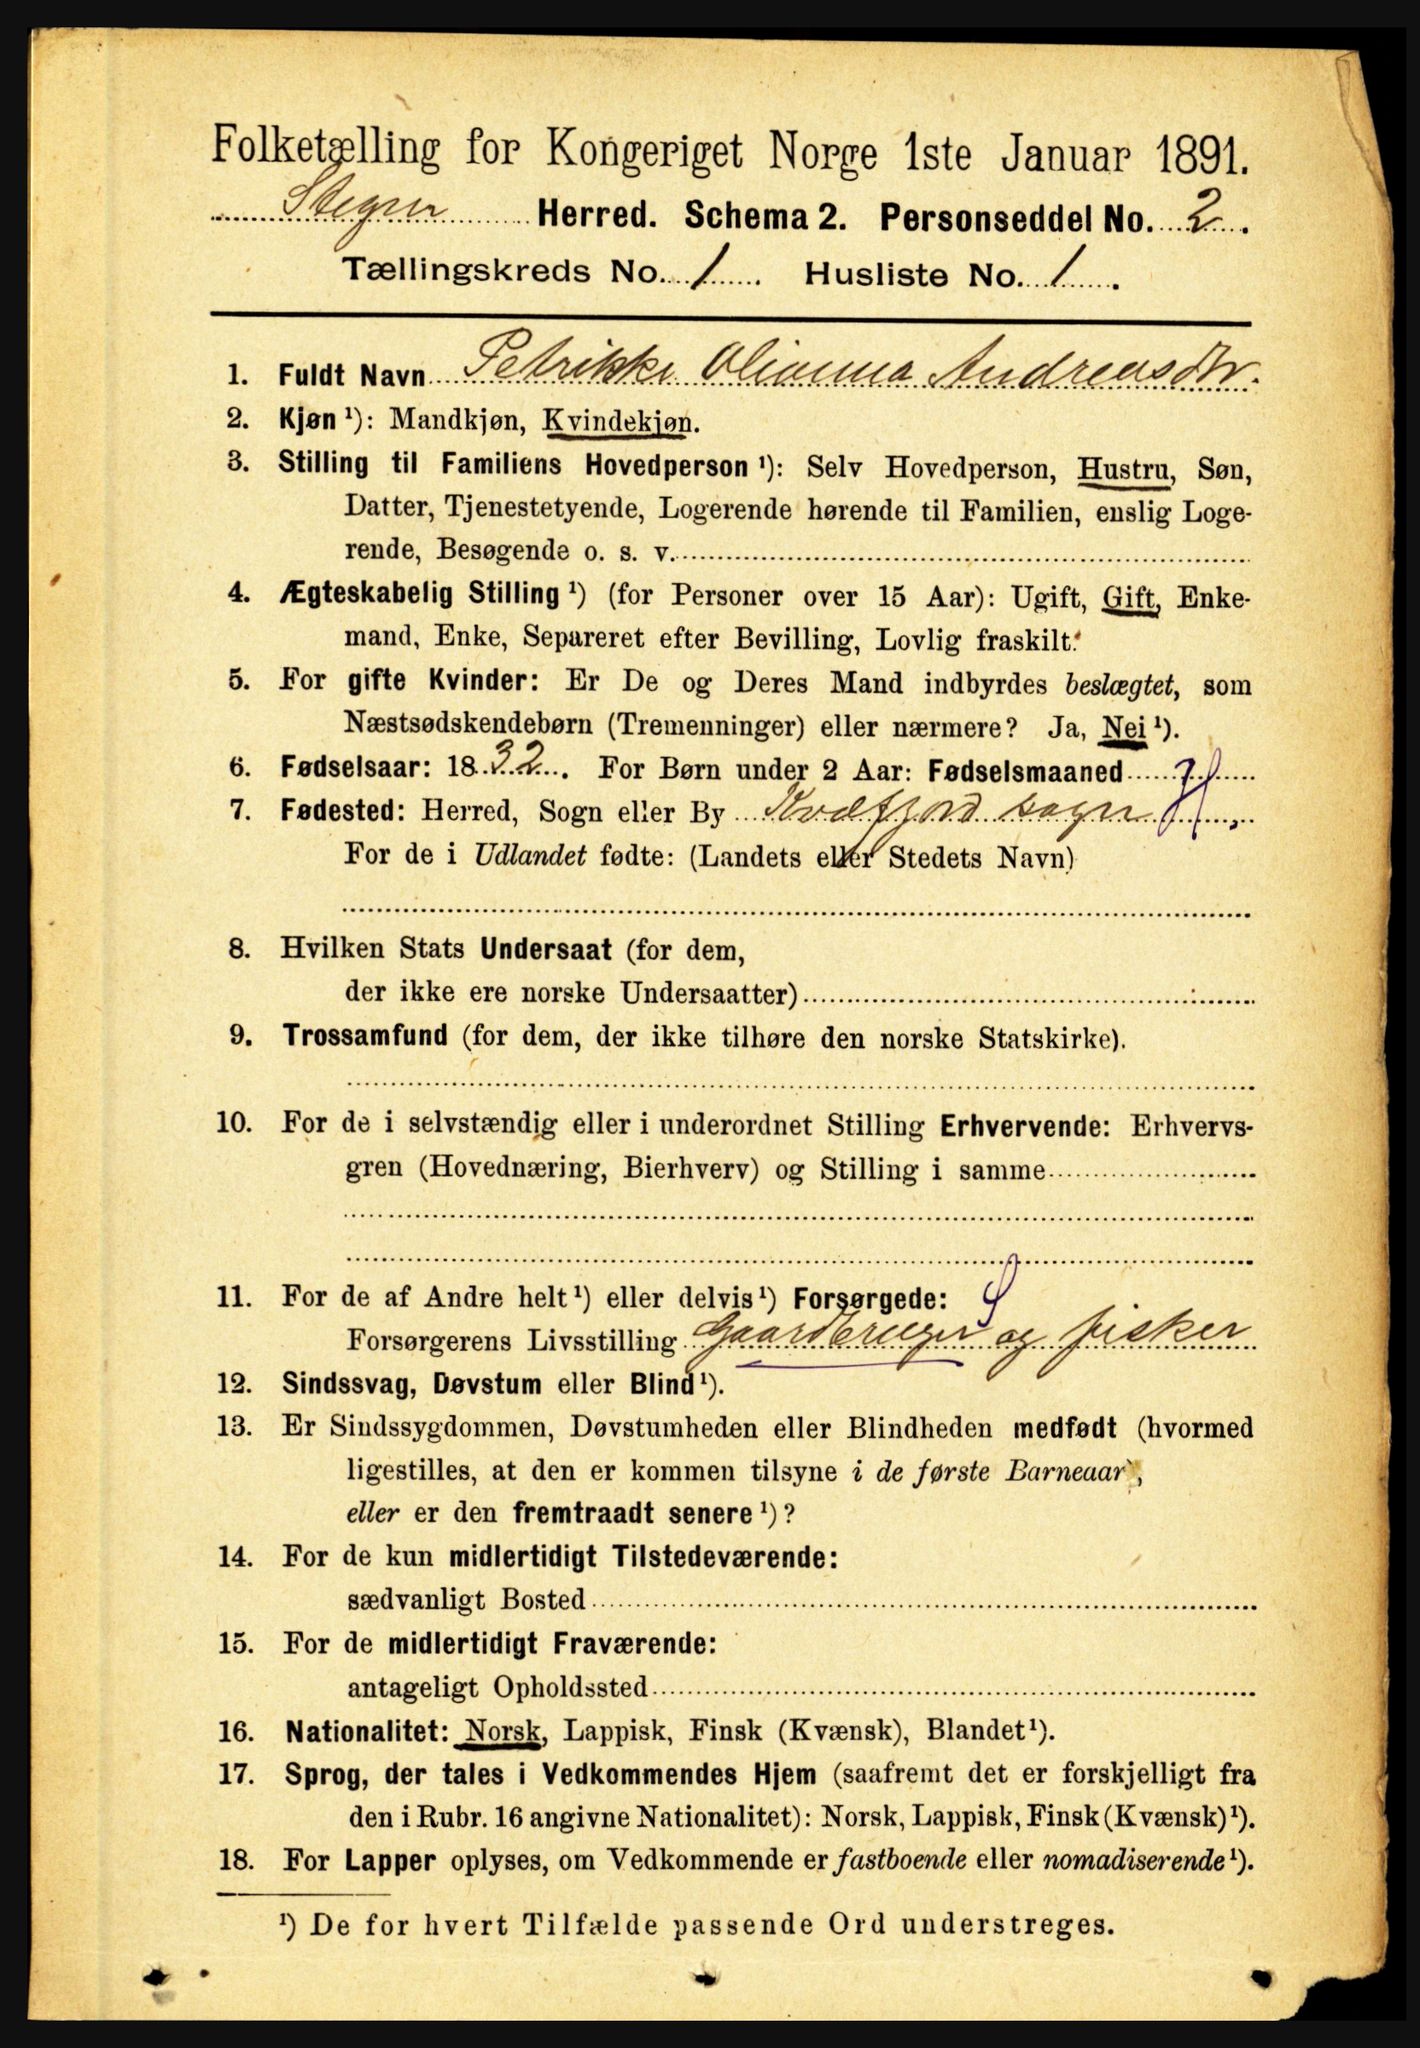 Folketælling for Kongeriget Norge 1ste Januar 1891.
Herred. Schema 2. Personseddel No. 2.
Tællingskreds No. 1. Husliste No. 1.
1. Fuldt Navn Petrikke Olianna Andreasdtr.
2. Kjøn ¹): Mandkjøn, Kvindekjøn.
3. Stilling til Familiens Hovedperson ¹): Selv Hovedperson, Hustru, Søn,
Datter, Tjenestetyende, Logerende hørende til Familien, enslig Loge-
rende, Besøgende o. s. v.
4. Ægteskabelig Stilling ¹) (for Personer over 15 Aar): Ugift, Gift, Enke-
mand, Enke, Separeret efter Bevilling, Lovlig fraskilt.
5. For gifte Kvinder: Er De og Deres Mand indbyrdes beslægtet, som
Næstsødskendebørn (Tremenninger) eller nærmere? Ja, Nei ¹).
6. Fødselsaar: 1832. For Børn under 2 Aar: Fødselsmaaned
7. Fødested: Herred, Sogn eller By Kvæfjord sogn
For de i Udlandet fødte: (Landets eller Stedets Navn)
8. Hvilken Stats Undersaat (for dem,
der ikke ere norske Undersaatter)
9. Trossamfund (for dem, der ikke tilhøre den norske Statskirke).
10. For de i selvstændig eller i underordnet Stilling Erhvervende: Erhvervs-
gren (Hovednæring, Bierhverv) og Stilling i samme
11. For de af Andre helt ¹) eller delvis ¹) Forsørgede:
Forsørgerens Livsstilling Gaardbruger og fisker
12. Sindssvag, Døvstum eller Blind ¹).
13. Er Sindssygdommen, Døvstumheden eller Blindheden medfødt (hvormed
ligestilles, at den er kommen tilsyne i de første Barneaar),
eller er den fremtraadt senere ¹)?
14. For de kun midlertidigt Tilstedeværende:
sædvanligt Bosted
15. For de midlertidigt Fraværende:
antageligt Opholdssted
16. Nationalitet: Norsk, Lappisk, Finsk (Kvænsk), Blandet ¹).
17. Sprog, der tales i Vedkommendes Hjem (saafremt det er forskjelligt fra
den i Rubr. 16 angivne Nationalitet): Norsk, Lappisk, Finsk (Kvænsk) ¹).
18. For Lapper oplyses, om Vedkommende er fastboende eller nomadiserende ¹).
¹) De for hvert Tilfælde passende Ord understreges.